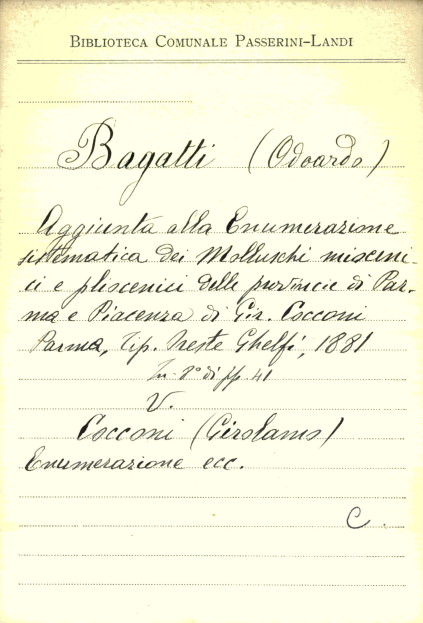 BIBLIOTECA COMUNALE PASSERINI-LANDI
Bagatti (Odoardo)
Aggiunta alla Enumerazione
sistematica dei Molluschi mioceni-
ci e pliocenici delle provincie di Par-
ma e Piacenza di Gir. Cocconi
Parma, Tip. Ghelfi, 1881
In 8° di pp. 41
V.
Cocconi (Girolamo)
Enumerazione ecc.
C.